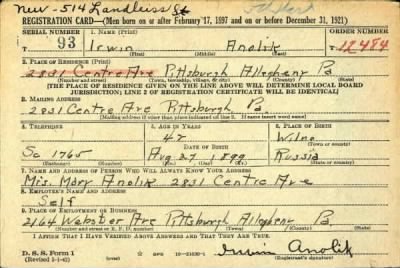 new - 514 Landleiss St
REGISTRATION CARD—(Men born on or after February 17, 1897 and on or before December 31, 1921)
SERIAL NUMBER 1. NAME (Print) ORDER NUMBER
93 Irwin Anolik 12484
(First) (Middle) (Last)
2. PLACE OF RESIDENCE (Print)
2831 Centre Ave Pittsburgh Allegheny Pa
(Number and street) (Town, township, village, or city) (County) (State)
[THE PLACE OF RESIDENCE GIVEN ON THE LINE ABOVE WILL DETERMINE LOCAL BOARD
JURISDICTION; LINE 2 OF REGISTRATION CERTIFICATE WILL BE IDENTICAL]
3. MAILING ADDRESS
2831 Centre Ave Pittsburgh Pa.
(Mailing address if other than place indicated on line 2. If same insert word same)
4. TELEPHONE 5. AGE IN YEARS 6. PLACE OF BIRTH
42 Wilno
DATE OF BIRTH (Town or county)
Sc 1765 Aug 27 1899 Russia
(Exchange) (Number) (Mo.) (Day) (Yr.) (State or country)
7. NAME AND ADDRESS OF PERSON WHO WILL ALWAYS KNOW YOUR ADDRESS
Mrs. Mary Anolik 2831 Centre Ave
8. EMPLOYER'S NAME AND ADDRESS
Self
9. PLACE OF EMPLOYMENT OR BUSINESS
2164 Webster Ave Pittsburgh Allegheny Pa
(Number and street or R. F. D. number) (Town) (County) (State)
I AFFIRM THAT I HAVE VERIFIED ABOVE ANSWERS AND THAT THEY ARE TRUE.
D. S. S. Form 1
(Revised 1-1-42) GPO Irwin Anolik
(Registrant's signature)